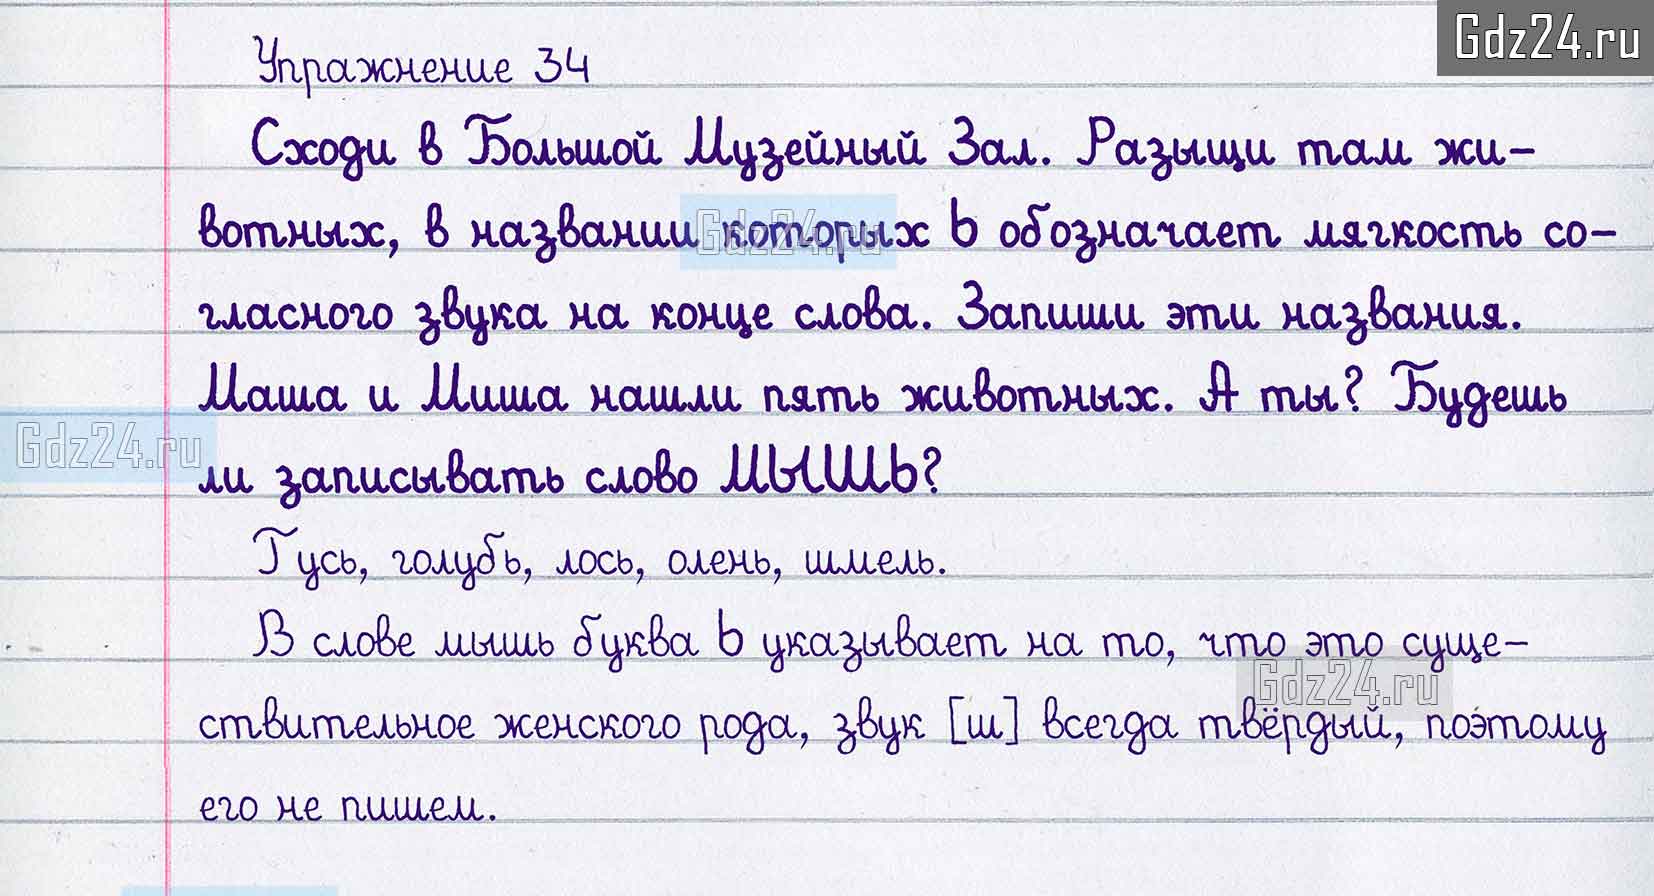 Gdz24.ru
Упражнение 34
Сходи в Большой Музейный Зал. Разыщи там жи-
вотных, в названии которых Ь обозначает мягкость со-
Gdz24.ru
гласного звука на конце слова. Запиши эти названия.
Маша и Миша нашли пять животных. А ты? Будешь
Gdz24.ru
ли записывать слово МЫШЬ?
Гусь, голубь, лось, олень, шмель.
В слове мышь буква Ь указывает на то, что это суще-
Gdz24.ru
ствительное женского рода, звук [ш] всегда твёрдый, поэтому
его не пишем.